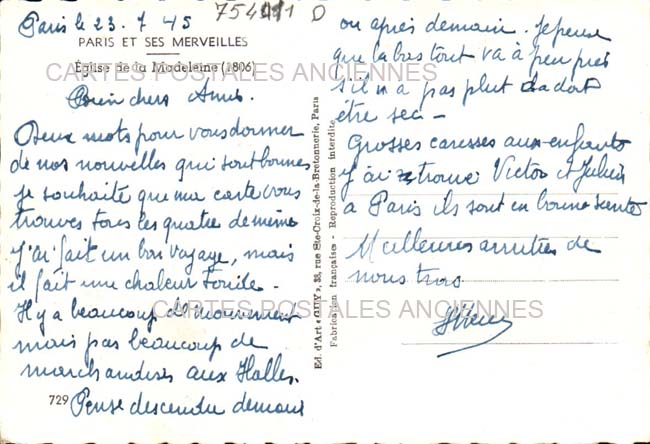 Paris le 23.7.45
754111 D
PARIS ET SES MERVEILLES
Église de la Madeleine (1806)
CARTES POSTALES ANCIENNES
Bien chers Amis.
Deux mots pour vous donner
de nos nouvelles qui sont bonnes
je souhaite que ma carte vous
trouves tous les quatre de même
J'ai fait un bon voyage, mais
il fait une chaleur
Il y a beaucoup de mouvement
mais pas beaucoup de
marchandises aux Halles.
729
Pense descendre demain
Ed. d'Art « GUY », 33, rue Ste-Croix-de-la-Bretonnerie, Paris
Fabrication française - Reproduction interdite
ou après demain. Je pense
que la bas tout va à peu près
s'il n a pas plut ça doit
être sec -
Grosses caresses aux enfants
J'ai retrouvé Victor et
a Paris ils sont en bonne sante
Meilleures amitiés de
nous trois
CARTES POSTALES ANCIENNES